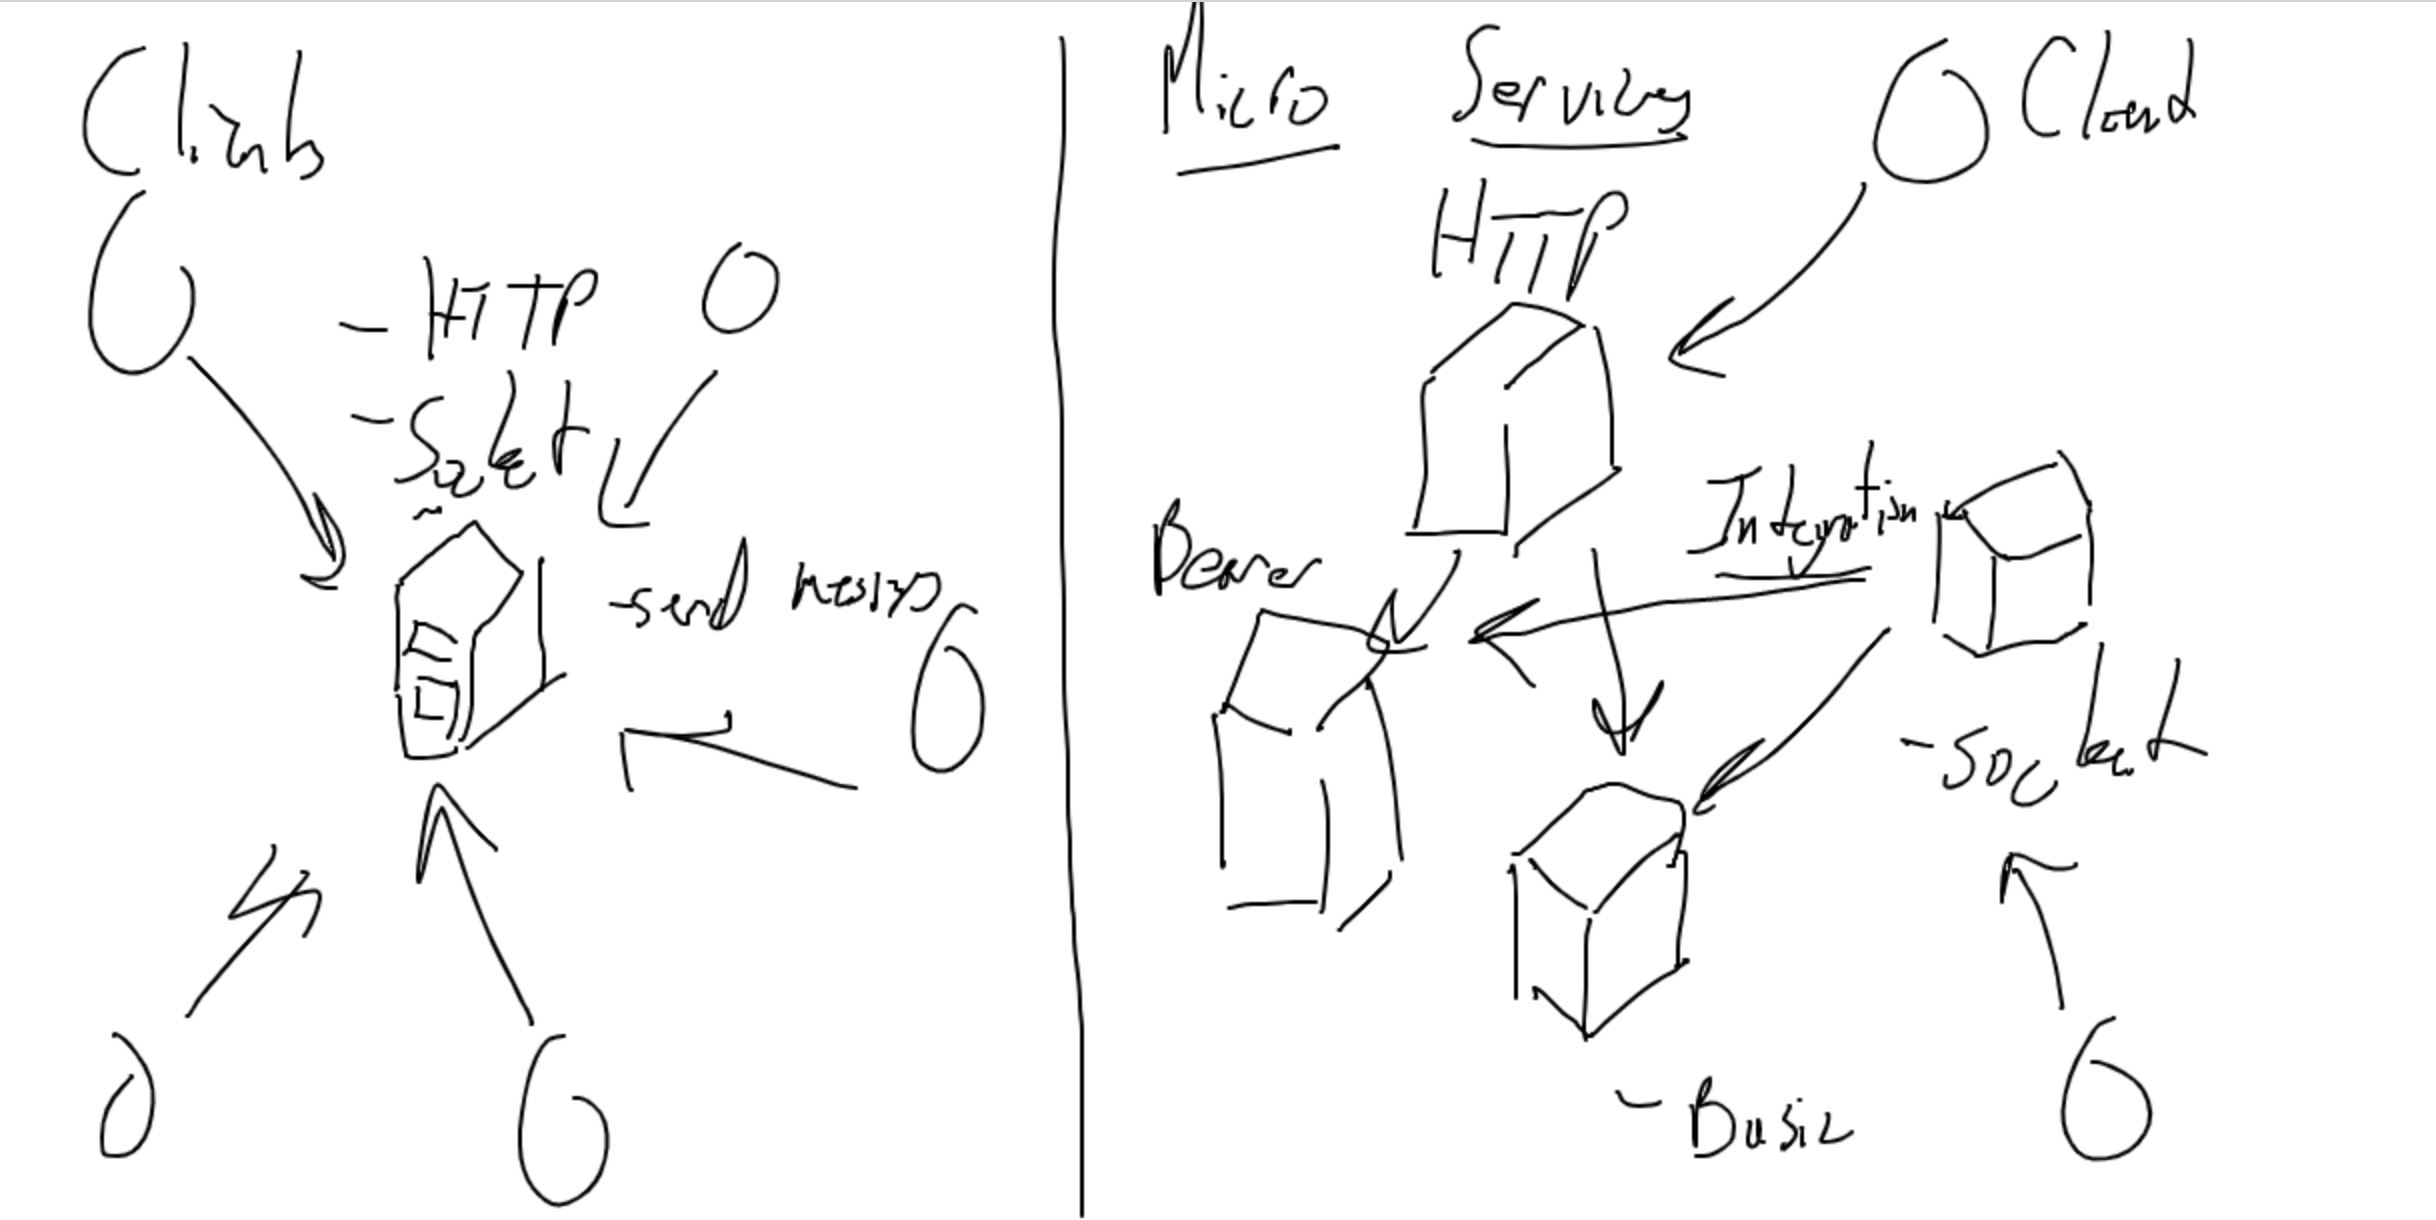 Clients
- HTTP
- Socket
- send
Micro Services
Client
HTTP
Bearer
Integration
- Socket
- Basic